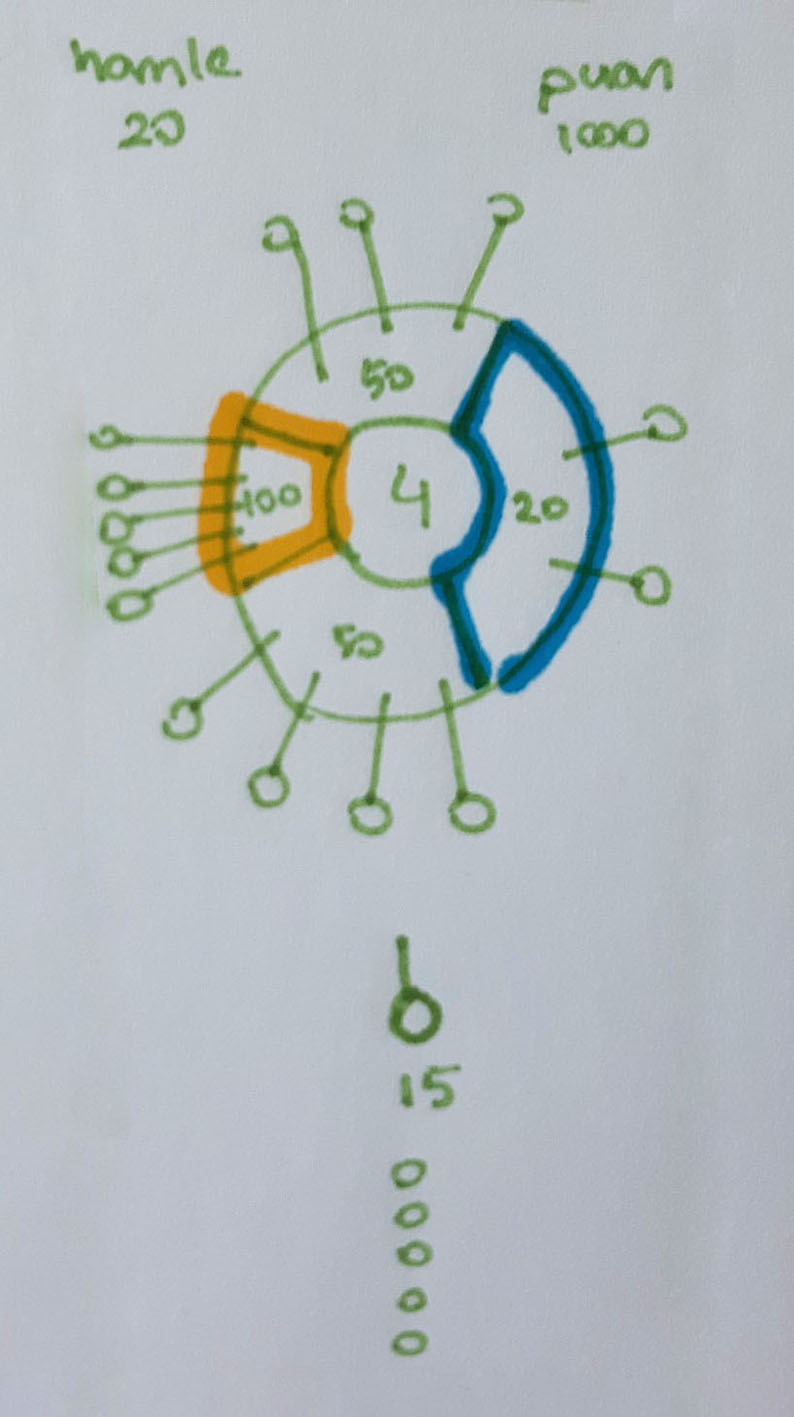 hamle
20
puan
1000
50
100
4
20
50
15